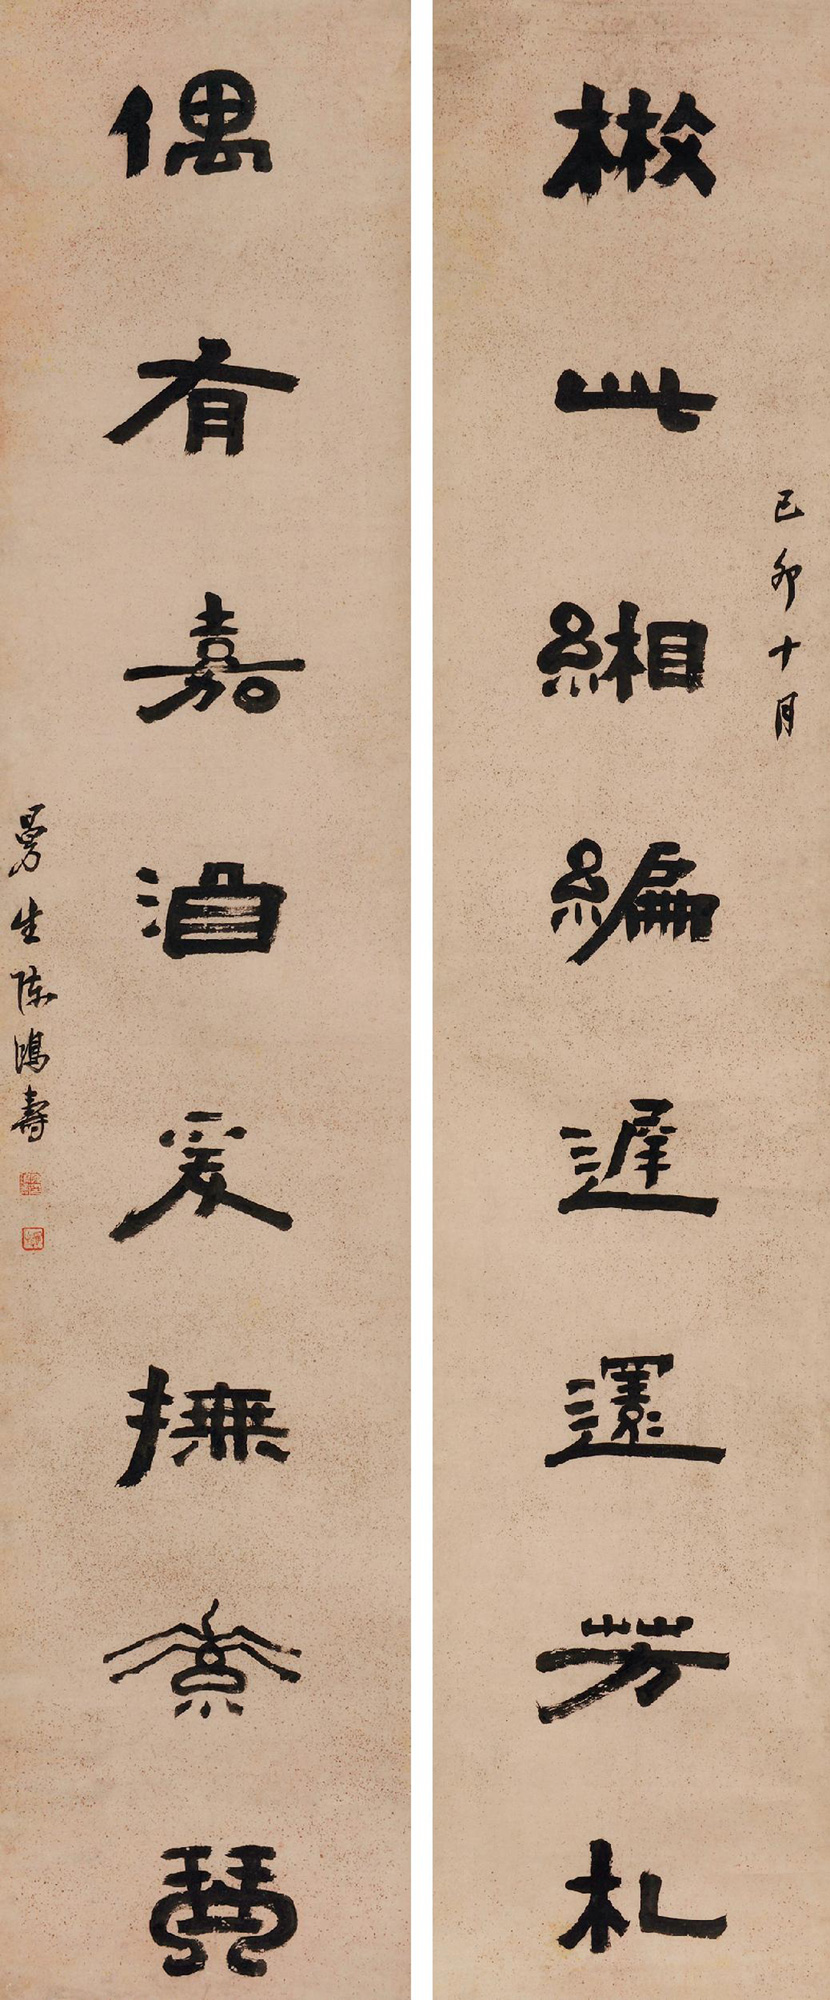 己卯十月
㪔此緗編遲還芳札
偶有嘉酒爰撫素琴
曼生陳鴻壽